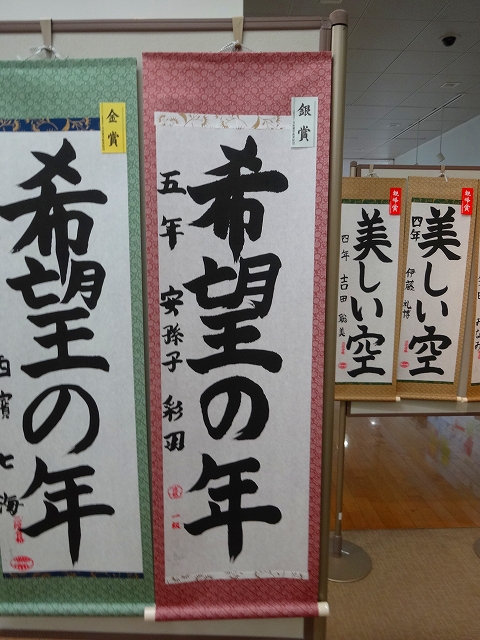 金賞
希望の年
七海
銀賞
希望の年
五年 安孫子 彩羽
一級
美しい空
四年 吉田 聡美
美しい空
四年 伊藤 礼博